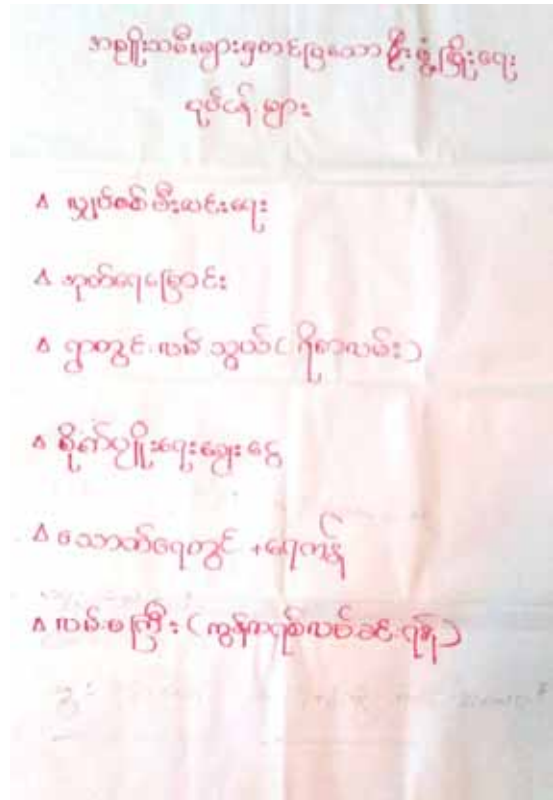 အမျိုးသမီးများမှတင်ပြသော ဦးဖွံ့ဖြိုးရေး
လုပ်ငန်းများ
∆ လျှပ်စစ်မီးလင်းရေး
∆ ချုတ်ရေမြောင်း
∆ ရွာတွင်းလမ်းသွယ် ( ရိုးရာလမ်း )
∆ စိုက်ပျိုးရေးချေးငွေ
∆ သောက်ရေတွင်း +ရေကန်
∆ လမ်းမကြီး ( ကွန်ကရစ်လမ်းခင်းရန် )